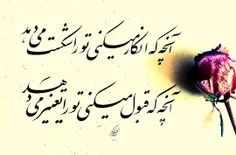 آنچه که انکار میکنی تو را شکست می دهد
آنچه که قبول میکنی تو را تغییر می دهد